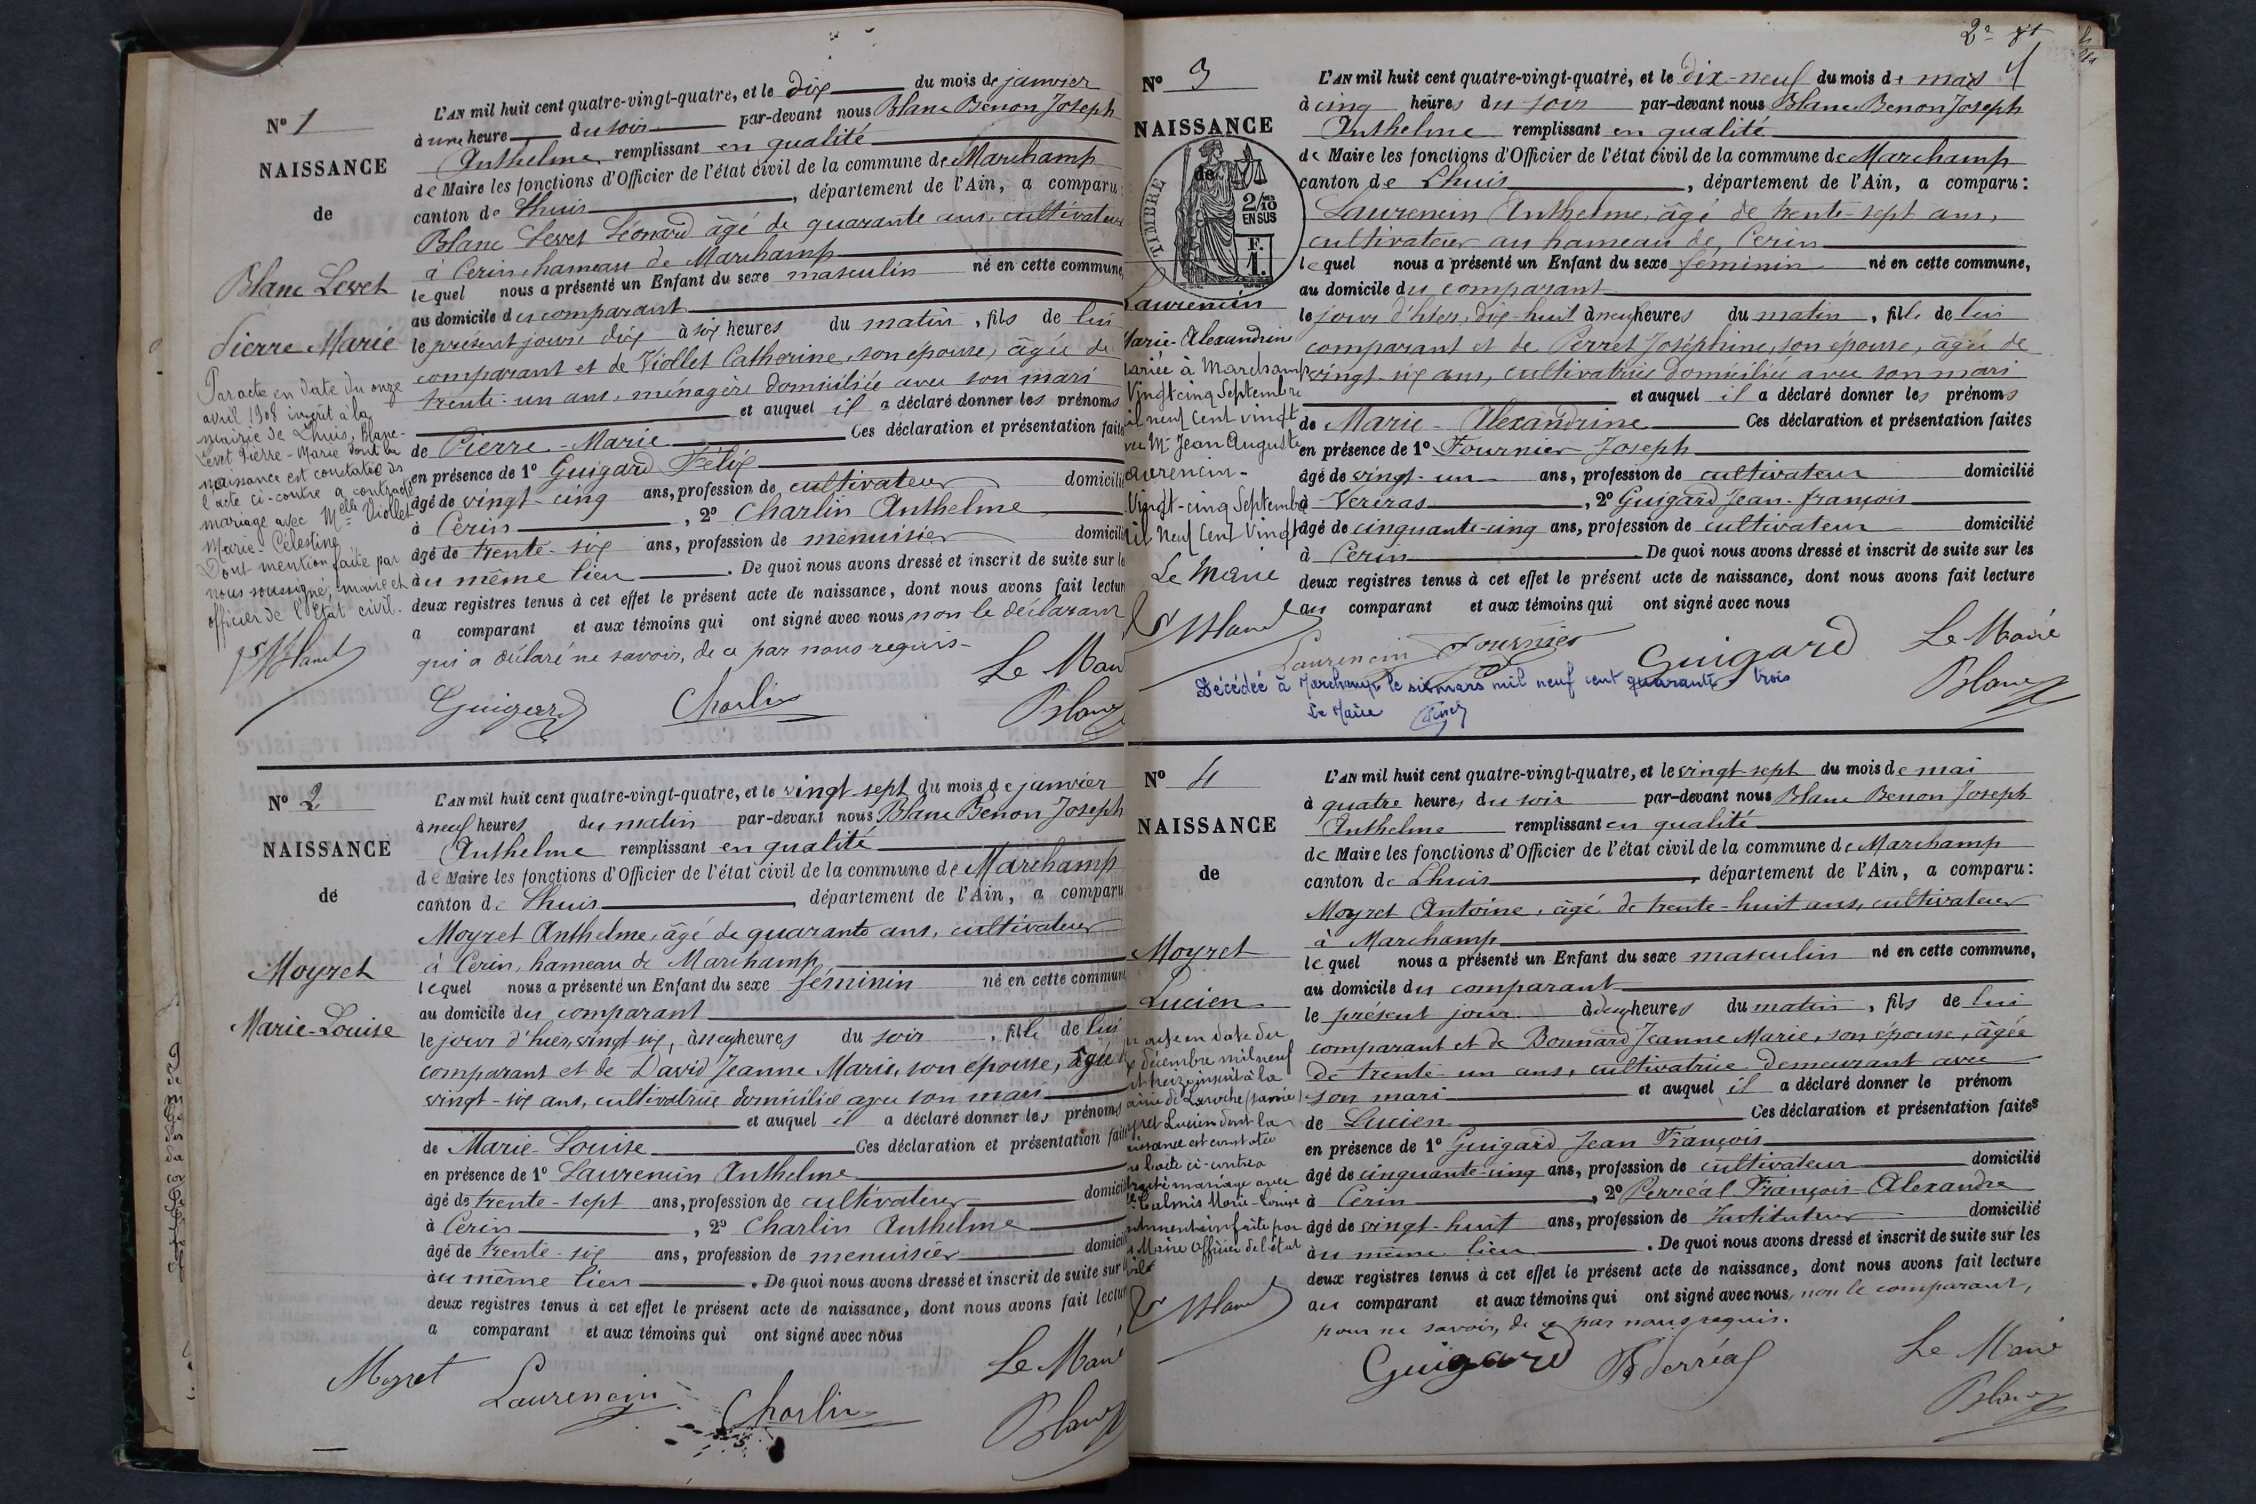 N° 1
NAISSANCE
de
Blanc Levet
Pierre Marie
Par acte en date du onze
avril 1908 inscrit à la
mairie de Lhuis, Blanc-
Levet Pierre-Marie dont la
naissance est constatée ds
l'acte ci-contre a contracté
mariage avec Melle Viollet
Marie-Célestine
Dont mention faite par
nous soussigné, maire et
officier de l'Etat civil.
L'AN mil huit cent quatre-vingt-quatre, et le dix du mois de janvier
à une heure du soir par-devant nous Blanc Benon Joseph
Anthelme remplissant en qualité
de Maire les fonctions d'Officier de l'état civil de la commune de Marchamp
canton de Lhuis, département de l'Ain, a comparu:
Blanc Levet Léonard âgé de quarante ans, cultivateur
à Cerin, hameau de Marchamp
lequel nous a présenté un Enfant du sexe masculin né en cette commune,
au domicile du comparant
le présent jour, dix à six heures du matin, fils de lui
comparant et de Viollet Catherine, son épouse, âgée de
trente-un ans, ménagère domiciliée avec son mari
et auquel il a déclaré donner les prénoms
de Pierre-Marie Ces déclaration et présentation faites
en présence de 1° Guigard Félix
âgé de vingt-cinq ans, profession de cultivateur domicilié
à Cerin, 2° Charlin Anthelme
âgé de trente-six ans, profession de menuisier domicilié
au même lieu. De quoi nous avons dressé et inscrit de suite sur le
deux registres tenus à cet effet le présent acte de naissance, dont nous avons fait lecture
a comparant et aux témoins qui ont signé avec nous non le déclarant
qui a déclaré ne savoir, de ce par nous requis-
Le Maire
Guigard Charlin Blanc
N° 2
NAISSANCE
de
Moyret
Marie-Louise
L'AN mil huit cent quatre-vingt-quatre, et le vingt-sept du mois de janvier
à neuf heures du matin par-devant nous Blanc Benon Joseph
Anthelme remplissant en qualité
de Maire les fonctions d'Officier de l'état civil de la commune de Marchamp
canton de Lhuis, département de l'Ain, a comparu
Moyret Anthelme, âgé de quarante ans, cultivateur
à Cerin, hameau de Marchamp,
lequel nous a présenté un Enfant du sexe féminin né en cette commune
au domicile du comparant
le jour d'hier, vingt-six, à neuf heures du soir, fille de lui
comparant et de David Jeanne Marie, son épouse, âgée de
vingt-six ans, cultivatrice domiciliée avec son mari
et auquel il a déclaré donner les prénoms
de Marie-Louise Ces déclaration et présentation faites
en présence de 1° Laurencin Anthelme
âgé de trente-sept ans, profession de cultivateur domicilié
à Cerin, 2° Charlin Anthelme
âgé de trente-six ans, profession de menuisier domicilié
au même lieu. De quoi nous avons dressé et inscrit de suite sur
deux registres tenus à cet effet le présent acte de naissance, dont nous avons fait lecture
a comparant et aux témoins qui ont signé avec nous
Le Maire
Moyret Laurencin Charlin Blanc
2e
N° 3
NAISSANCE
de
TIMBRE
2/10
EN SUS
F.
1.
Laurencin
Marie-Alexandrine
mariée à Marchamp
Vingt cinq Septembre
mil neuf Cent vingt
avec Mr Jean Auguste
Laurencin-
Vingt-cinq Septembre
mil Neuf Cent Vingt
Le Maire
L'AN mil huit cent quatre-vingt-quatre, et le dix-neuf du mois de mars
à cinq heures du soir par-devant nous Blanc Benon Joseph
Anthelme remplissant en qualité
de Maire les fonctions d'Officier de l'état civil de la commune de Marchamp
canton de Lhuis, département de l'Ain, a comparu:
Laurencin Anthelme, âgé de trente-sept ans,
cultivateur au hameau de Cerin
lequel nous a présenté un Enfant du sexe féminin né en cette commune,
au domicile du comparant
le jour d'hier, dix-huit à neuf heures du matin, fille de lui
comparant et de Perret Joséphine, son épouse, âgée de
vingt-six ans, cultivatrice domiciliée avec son mari
et auquel il a déclaré donner les prénoms
de Marie-Alexandrine Ces déclaration et présentation faites
en présence de 1° Fournier Joseph
âgé de vingt-un ans, profession de cultivateur domicilié
à Vercras, 2° Guigard Jean-françois
âgé de cinquante-cinq ans, profession de cultivateur domicilié
à Cerin De quoi nous avons dressé et inscrit de suite sur les
deux registres tenus à cet effet le présent acte de naissance, dont nous avons fait lecture
au comparant et aux témoins qui ont signé avec nous
Laurencin Fournier Guigard Le Maire
Blanc
Décédée à Marchamp le six mars mil neuf cent quarante trois
Le Maire
N° 4
NAISSANCE
de
Moyret
Lucien
acte en date du
décembre mil neuf
cent treize inscrit à la
mairie de Laroche (savoie)
Moyret Lucien dont la
naissance est constatée
l'acte ci-contre a
contracté mariage avec
Calmis Marie-Louise
dont mention faite par
Maire Officier de l'état
civil
L'AN mil huit cent quatre-vingt-quatre, et le vingt-sept du mois de mai
à quatre heures du soir par-devant nous Blanc Benon Joseph
Anthelme remplissant en qualité
de Maire les fonctions d'Officier de l'état civil de la commune de Marchamp
canton de Lhuis, département de l'Ain, a comparu:
Moyret Antoine, âgé de trente-huit ans, cultivateur
à Marchamp
lequel nous a présenté un Enfant du sexe masculin né en cette commune,
au domicile du comparant
le présent jour à deux heures du matin, fils de lui
comparant et de Bonnard Jeanne Marie, son épouse, âgée
de trente-un ans, cultivatrice demeurant avec
son mari et auquel il a déclaré donner le prénom
de Lucien Ces déclaration et présentation faites
en présence de 1° Guigard Jean François
âgé de cinquante-cinq ans, profession de cultivateur domicilié
à Cerin, 2° Perréal François Alexandre
âgé de vingt-huit ans, profession de Instituteur domicilié
au même lieu. De quoi nous avons dressé et inscrit de suite sur les
deux registres tenus à cet effet le présent acte de naissance, dont nous avons fait lecture
au comparant et aux témoins qui ont signé avec nous, non le comparant,
pour ne savoir, de ce par nous requis.
Guigard Perréal Le Maire
Blanc